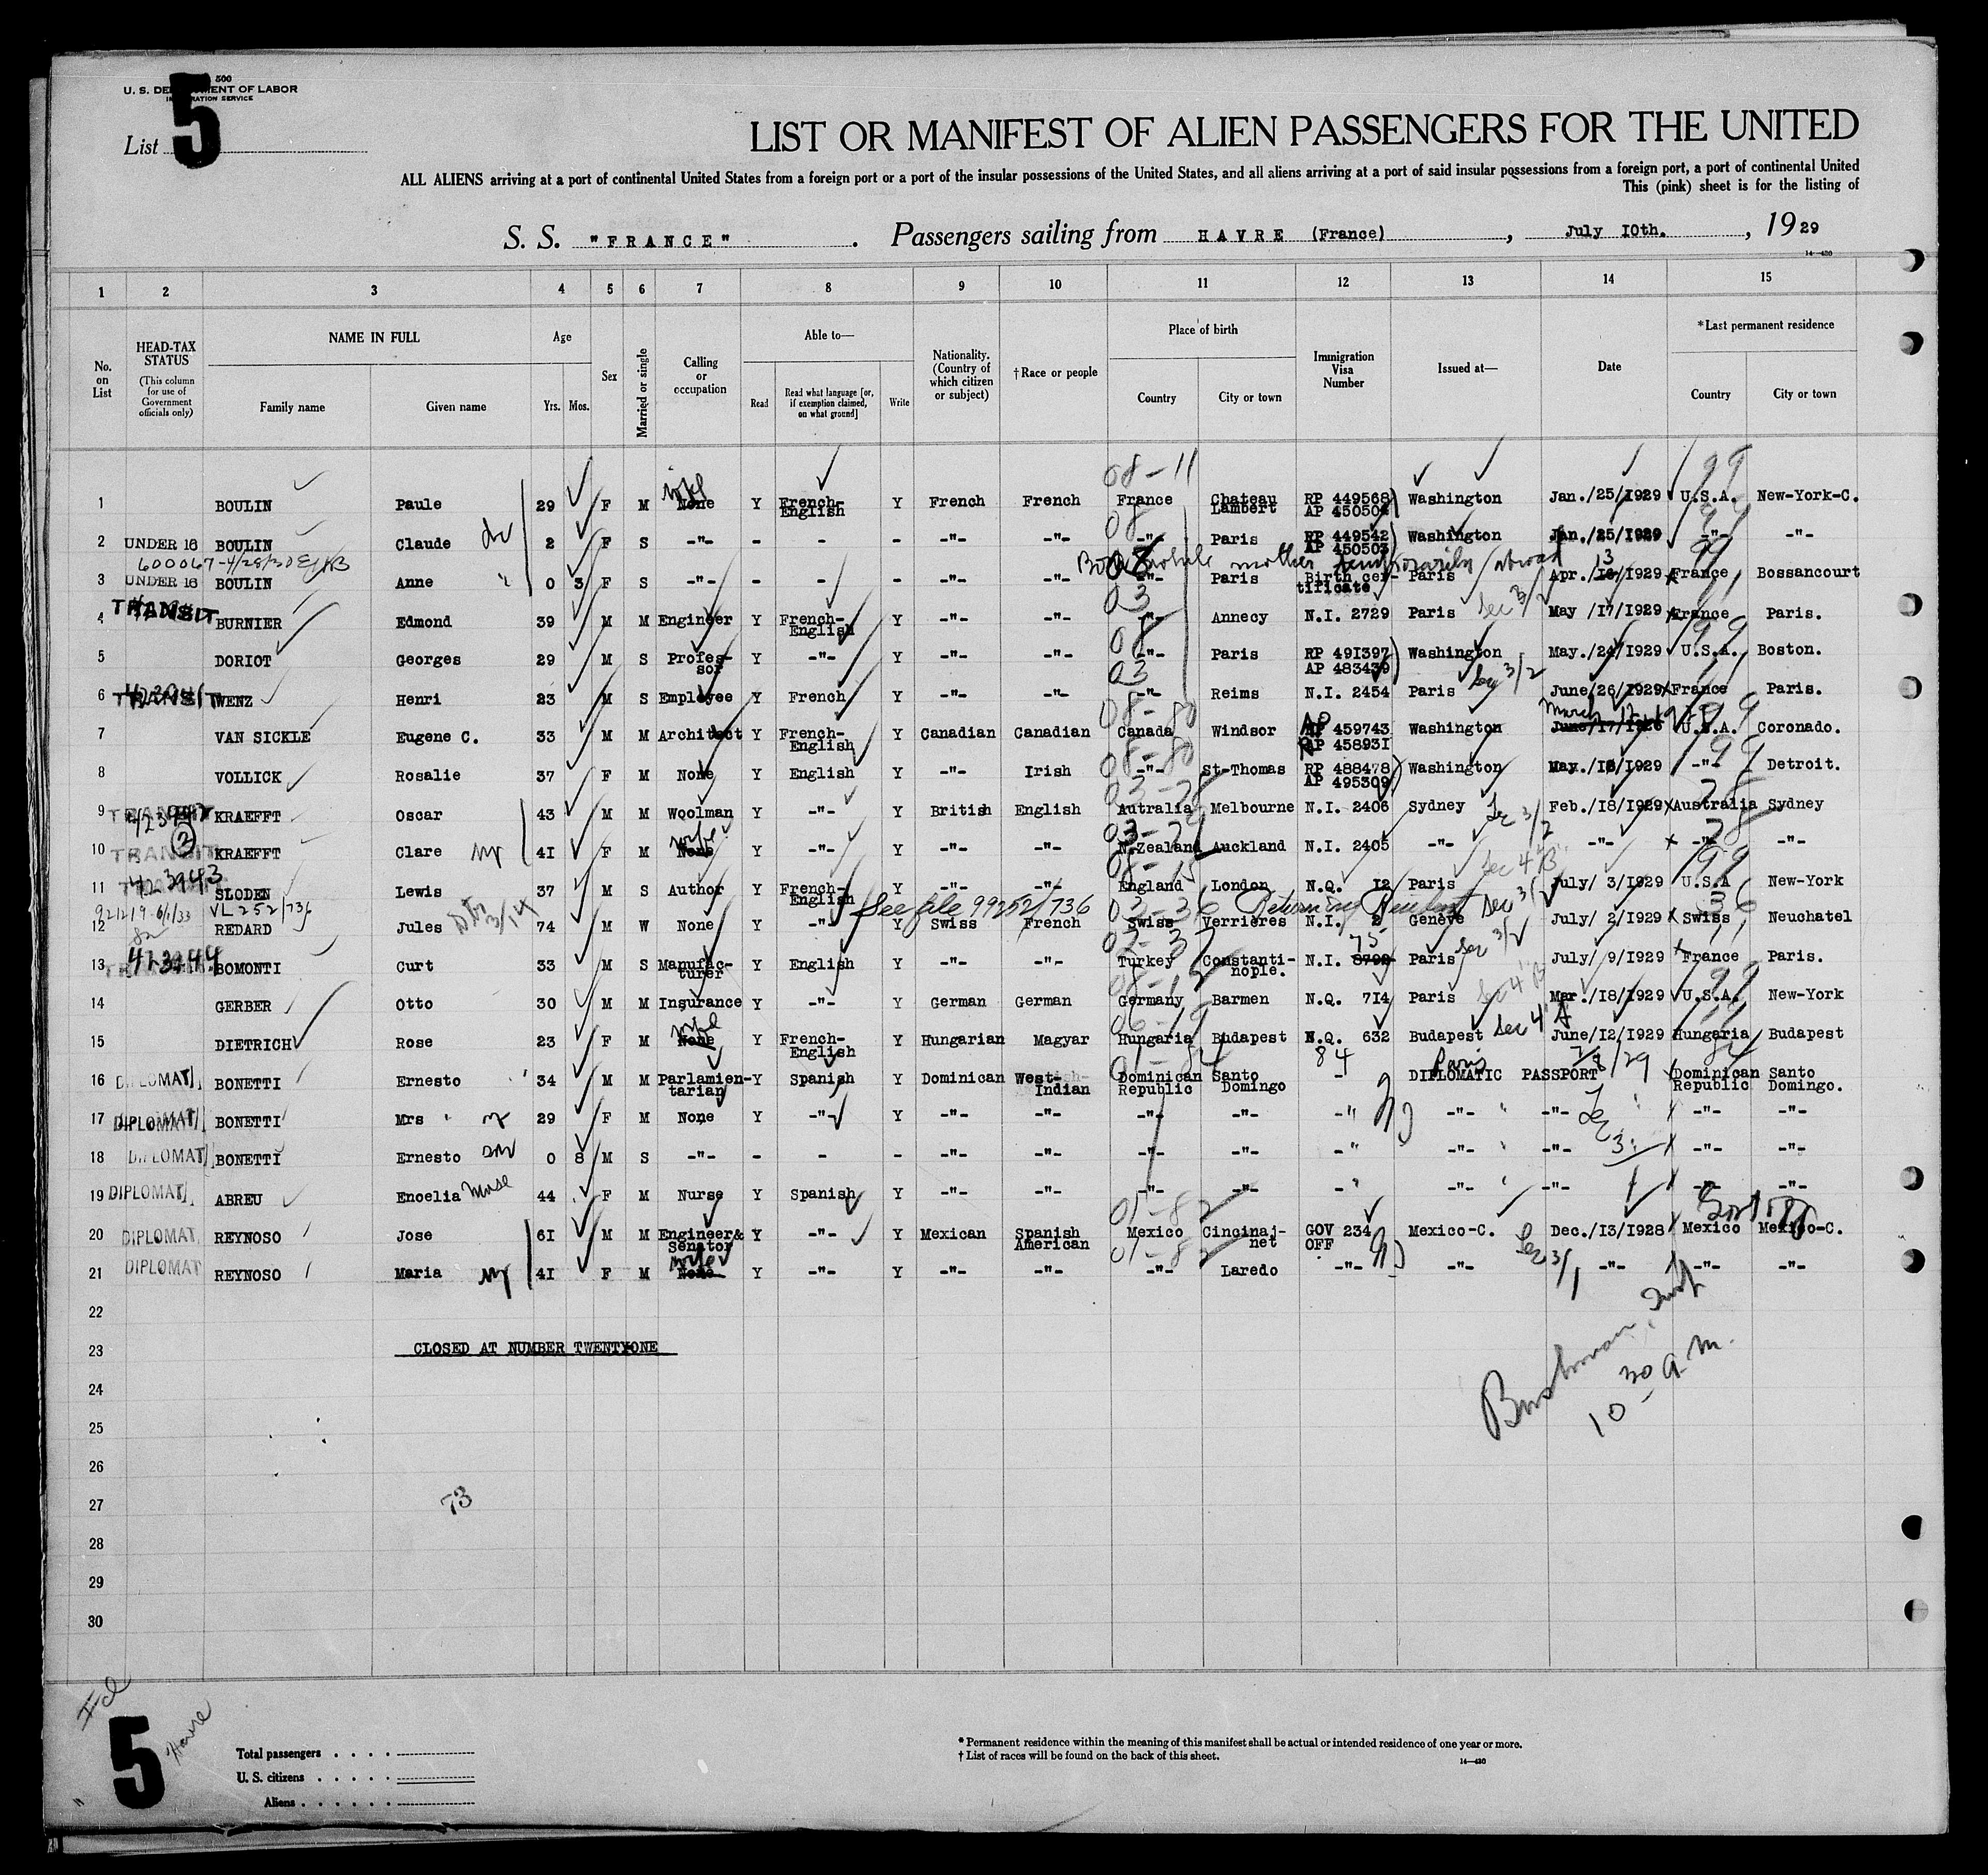 500
U. S. DEPARTMENT OF LABOR
IMMIGRATION SERVICE
List 5
LIST OR MANIFEST OF ALIEN PASSENGERS FOR THE UNITED
ALL ALIENS arriving at a port of continental United States from a foreign port or a port of the insular possessions of the United States, and all aliens arriving at a port of said insular possessions from a foreign port, a port of continental United
This (pink) sheet is for the listing of
S. S. "FRANCE" . Passengers sailing from HAVRE (France) , July I0th. , 1929
14—430
1 2 3 4 5 6 7 8 9 10 11 12 13 14 15
No. on List
HEAD-TAX STATUS (This column for use of Government officials only)
NAME IN FULL
Family name Given name
Age
Yrs. Mos.
Sex
Married or single
Calling or occupation
Able to—
Read Read what language [or, if exemption claimed, on what ground] Write
Nationality. (Country of which citizen or subject)
†Race or people
Place of birth
Country City or town
Immigration Visa Number
Issued at—
Date
*Last permanent residence
Country City or town
08-11 99
1 BOULIN Paule 29 F M wife None Y French-English Y French French France Chateau Lambert RP 449568 AP 450504 Washington Jan./25/I929 U.S.A. New-York-C.
2 UNDER 16 BOULIN Claude 2 F S -"- - - - -"- -"- -"- Paris RP 449542 AP 450503 Washington Jan./25/I929 -"- -"-
600067-4/28/30 Born while mother temporarily abroad
3 UNDER 16 BOULIN Anne 0 3 F S -"- - - - -"- -"- -"- Paris Birth certificate Paris Apr./ /I929 France Bossancourt
4 TRANSIT BURNIER Edmond 39 M M Engineer Y French-English Y -"- -"- 03 -"- Annecy N.I. 2729 Paris Sec 3/2 May /I7/I929 France Paris.
5 DORIOT Georges 29 M S Professor Y -"- Y -"- -"- 08 -"- Paris RP 49I397 AP 483439 Washington May./24/I929 U.S.A. Boston.
6 TRANSIT WENZ Henri 23 M S Employee Y French Y -"- -"- 03 -"- Reims N.I. 2454 Paris Sec 3/2 June/26/I929 France Paris.
7 VAN SICKLE Eugene C. 33 M M Architect Y French-English Y Canadian Canadian 08-80 Canada Windsor AP 459743 RP 45893I Washington June/I7/I926 U.S.A. Coronado.
8 VOLLICK Rosalie 37 F M None Y English Y -"- Irish 08-80 -"- St-Thomas RP 488478 AP 495309 Washington May./I8/I929 -"- Detroit.
9 TRANSIT KRAEFFT Oscar 43 M M Woolman Y -"- Y British English Autralia Melbourne N.I. 2406 Sydney Sec 3/2 Feb./I8/I929 Australia Sydney
10 TRANSIT KRAEFFT Clare 4I F M wife None Y -"- Y -"- -"- N.Zealand Auckland N.I. 2405 -"- -"- -"- -"-
11 SLODEN Lewis 37 M S Author Y French-English Y -"- -"- England London N.Q. I2 Paris Sec 4 B July/ 3/I929 U.S.A New-York
92121 9-6/1/33 VL 252/736 See file 99252/736 Returning Resident
12 REDARD Jules 74 M W None Y -"- Y Swiss French 03-36 Swiss Verrieres N.I. 2 Geneve Sec 3/2 July/ 2/I929 Swiss Neuchatel
13 TRANSIT BOMONTI Curt 33 M S Manufacturer Y English Y -"- -"- Turkey Constantinople. N.I. 75 8792 Paris Sec 3/2 July/ 9/I929 France Paris.
14 GERBER Otto 30 M M Insurance Y -"- Y German German Germany Barmen N.Q. 7I4 Paris Sec 4 B Mar./I8/I929 U.S.A. New-York
15 DIETRICH Rose 23 F M wife None Y French-English Y Hungarian Magyar Hungaria Budapest N.Q. 632 Budapest Sec 4 A June/I2/I929 Hungaria Budapest
16 DIPLOMAT BONETTI Ernesto 34 M M Parlamientarian Y Spanish Y Dominican West-Indian 01-84 Dominican Republic Santo Domingo - Paris DIPLOMATIC PASSPORT Dominican Republic Santo Domingo.
17 DIPLOMAT BONETTI Mrs 29 F M None Y -"- Y -"- -"- -"- -"- -" -"- -"- -"- -"-
18 DIPLOMAT BONETTI Ernesto son 0 8 M S -"- - - - -"- -"- -"- -"- -" -"- -"- -"- -"-
19 DIPLOMAT ABREU Encelia Nurse 44 F M Nurse Y Spanish Y -"- -"- -"- -"- -" -"- -"- -"- -"-
20 DIPLOMAT REYNOSO Jose 6I M M Engineer & Senator Y -"- Y Mexican Spanish American 01-82 Mexico Cincinaj-net GOV 234 OFF Mexico-C. Dec./I3/I928 Mexico Mexico-C.
21 DIPLOMAT REYNOSO Maria 4I F M wife None Y -"- Y -"- -"- 01-82 -"- Laredo -"- -"- Sec 3/1 -"- -"- -"-
22
23 CLOSED AT NUMBER TWENTY-ONE
24
10 30 a.m.
25
26
27
73
28
29
30
5 Havre
Total passengers . . . .
U. S. citizens . . . . .
Aliens . . . . . .
* Permanent residence within the meaning of this manifest shall be actual or intended residence of one year or more.
† List of races will be found on the back of this sheet.
14—430